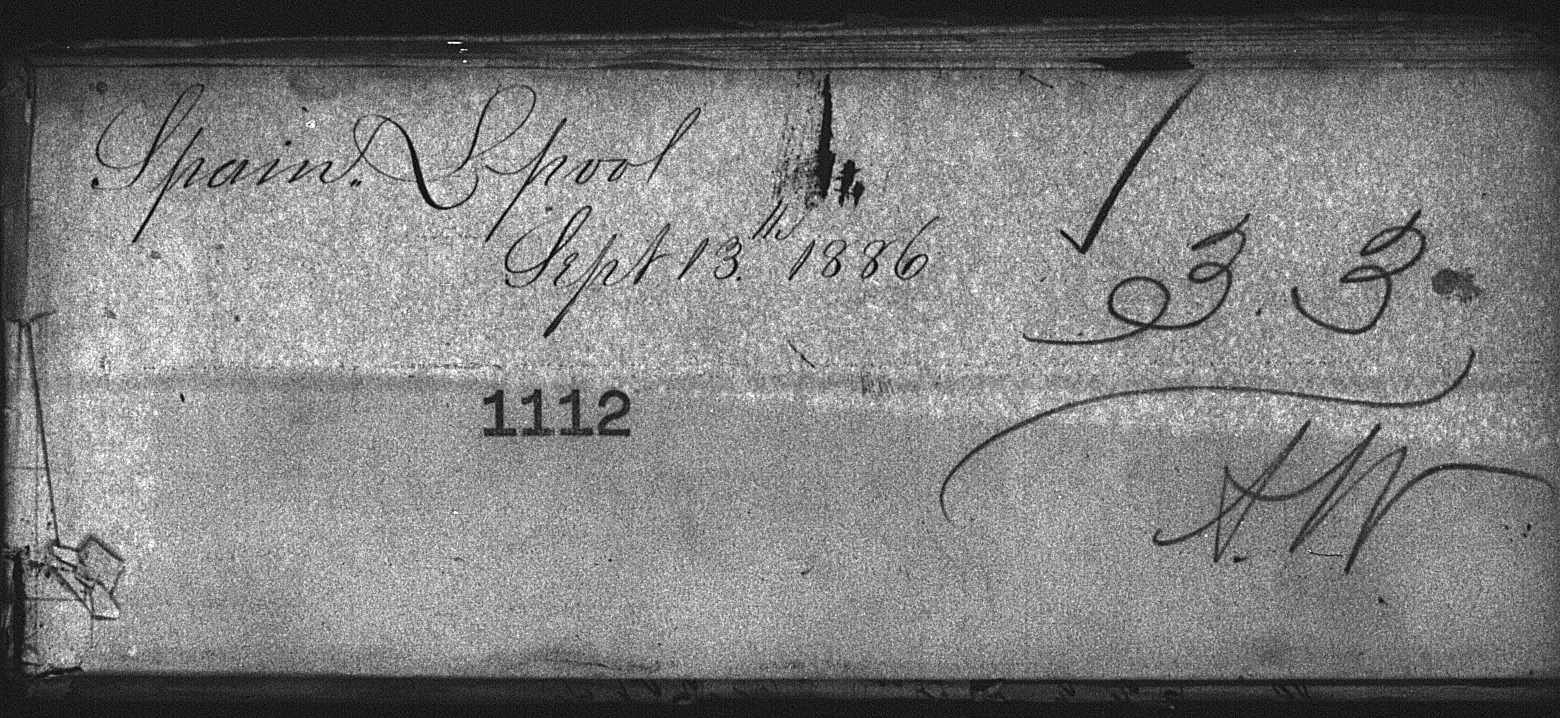 Spain. L'pool
Sept 13.th 1886
3. 3.
1112
A. W